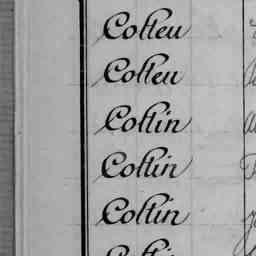 Colleu
Colleu
Collin
Collin
Collin